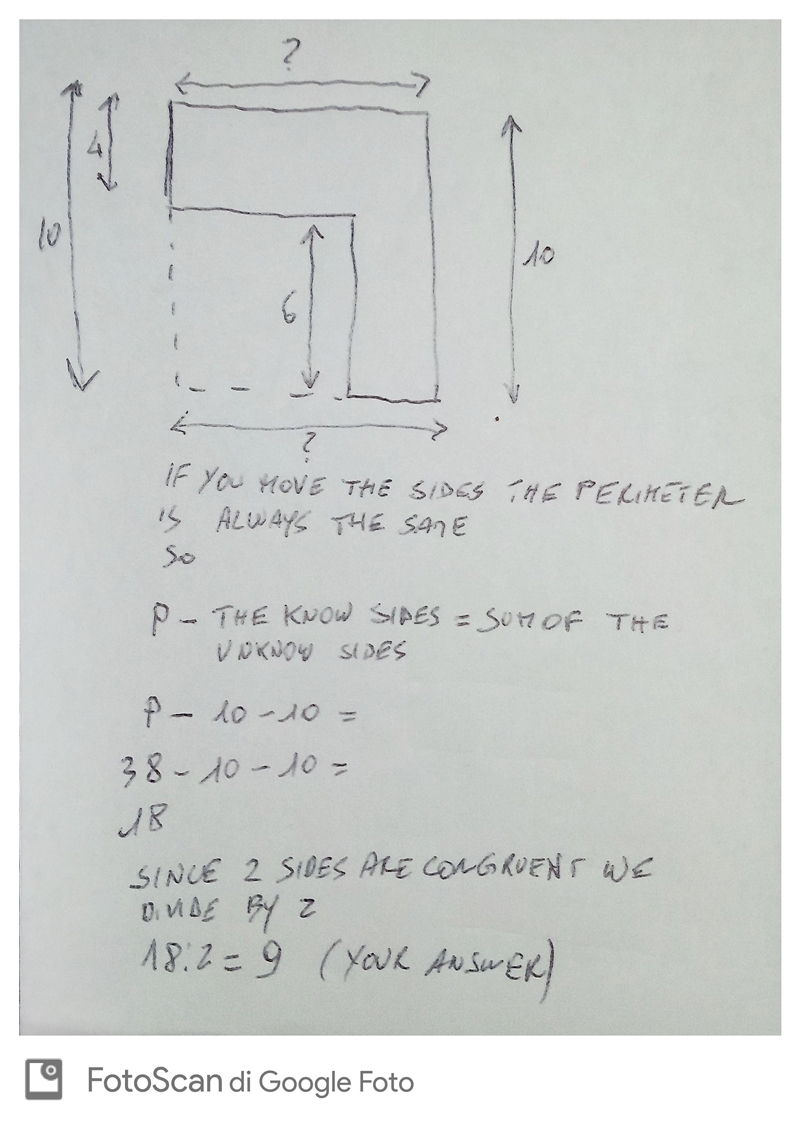 ?
4
10
10
6
?
IF YOU MOVE THE SIDES THE PERIMETER
IS ALWAYS THE SAME
SO
P - THE KNOW SIDES = SUM OF THE
UNKNOW SIDES
P - 10 - 10 =
38 - 10 - 10 =
18
SINCE 2 SIDES ARE CONGRUENT WE
DIVIDE BY 2
18:2 = 9 (YOUR ANSWER)
FotoScan di Google Foto